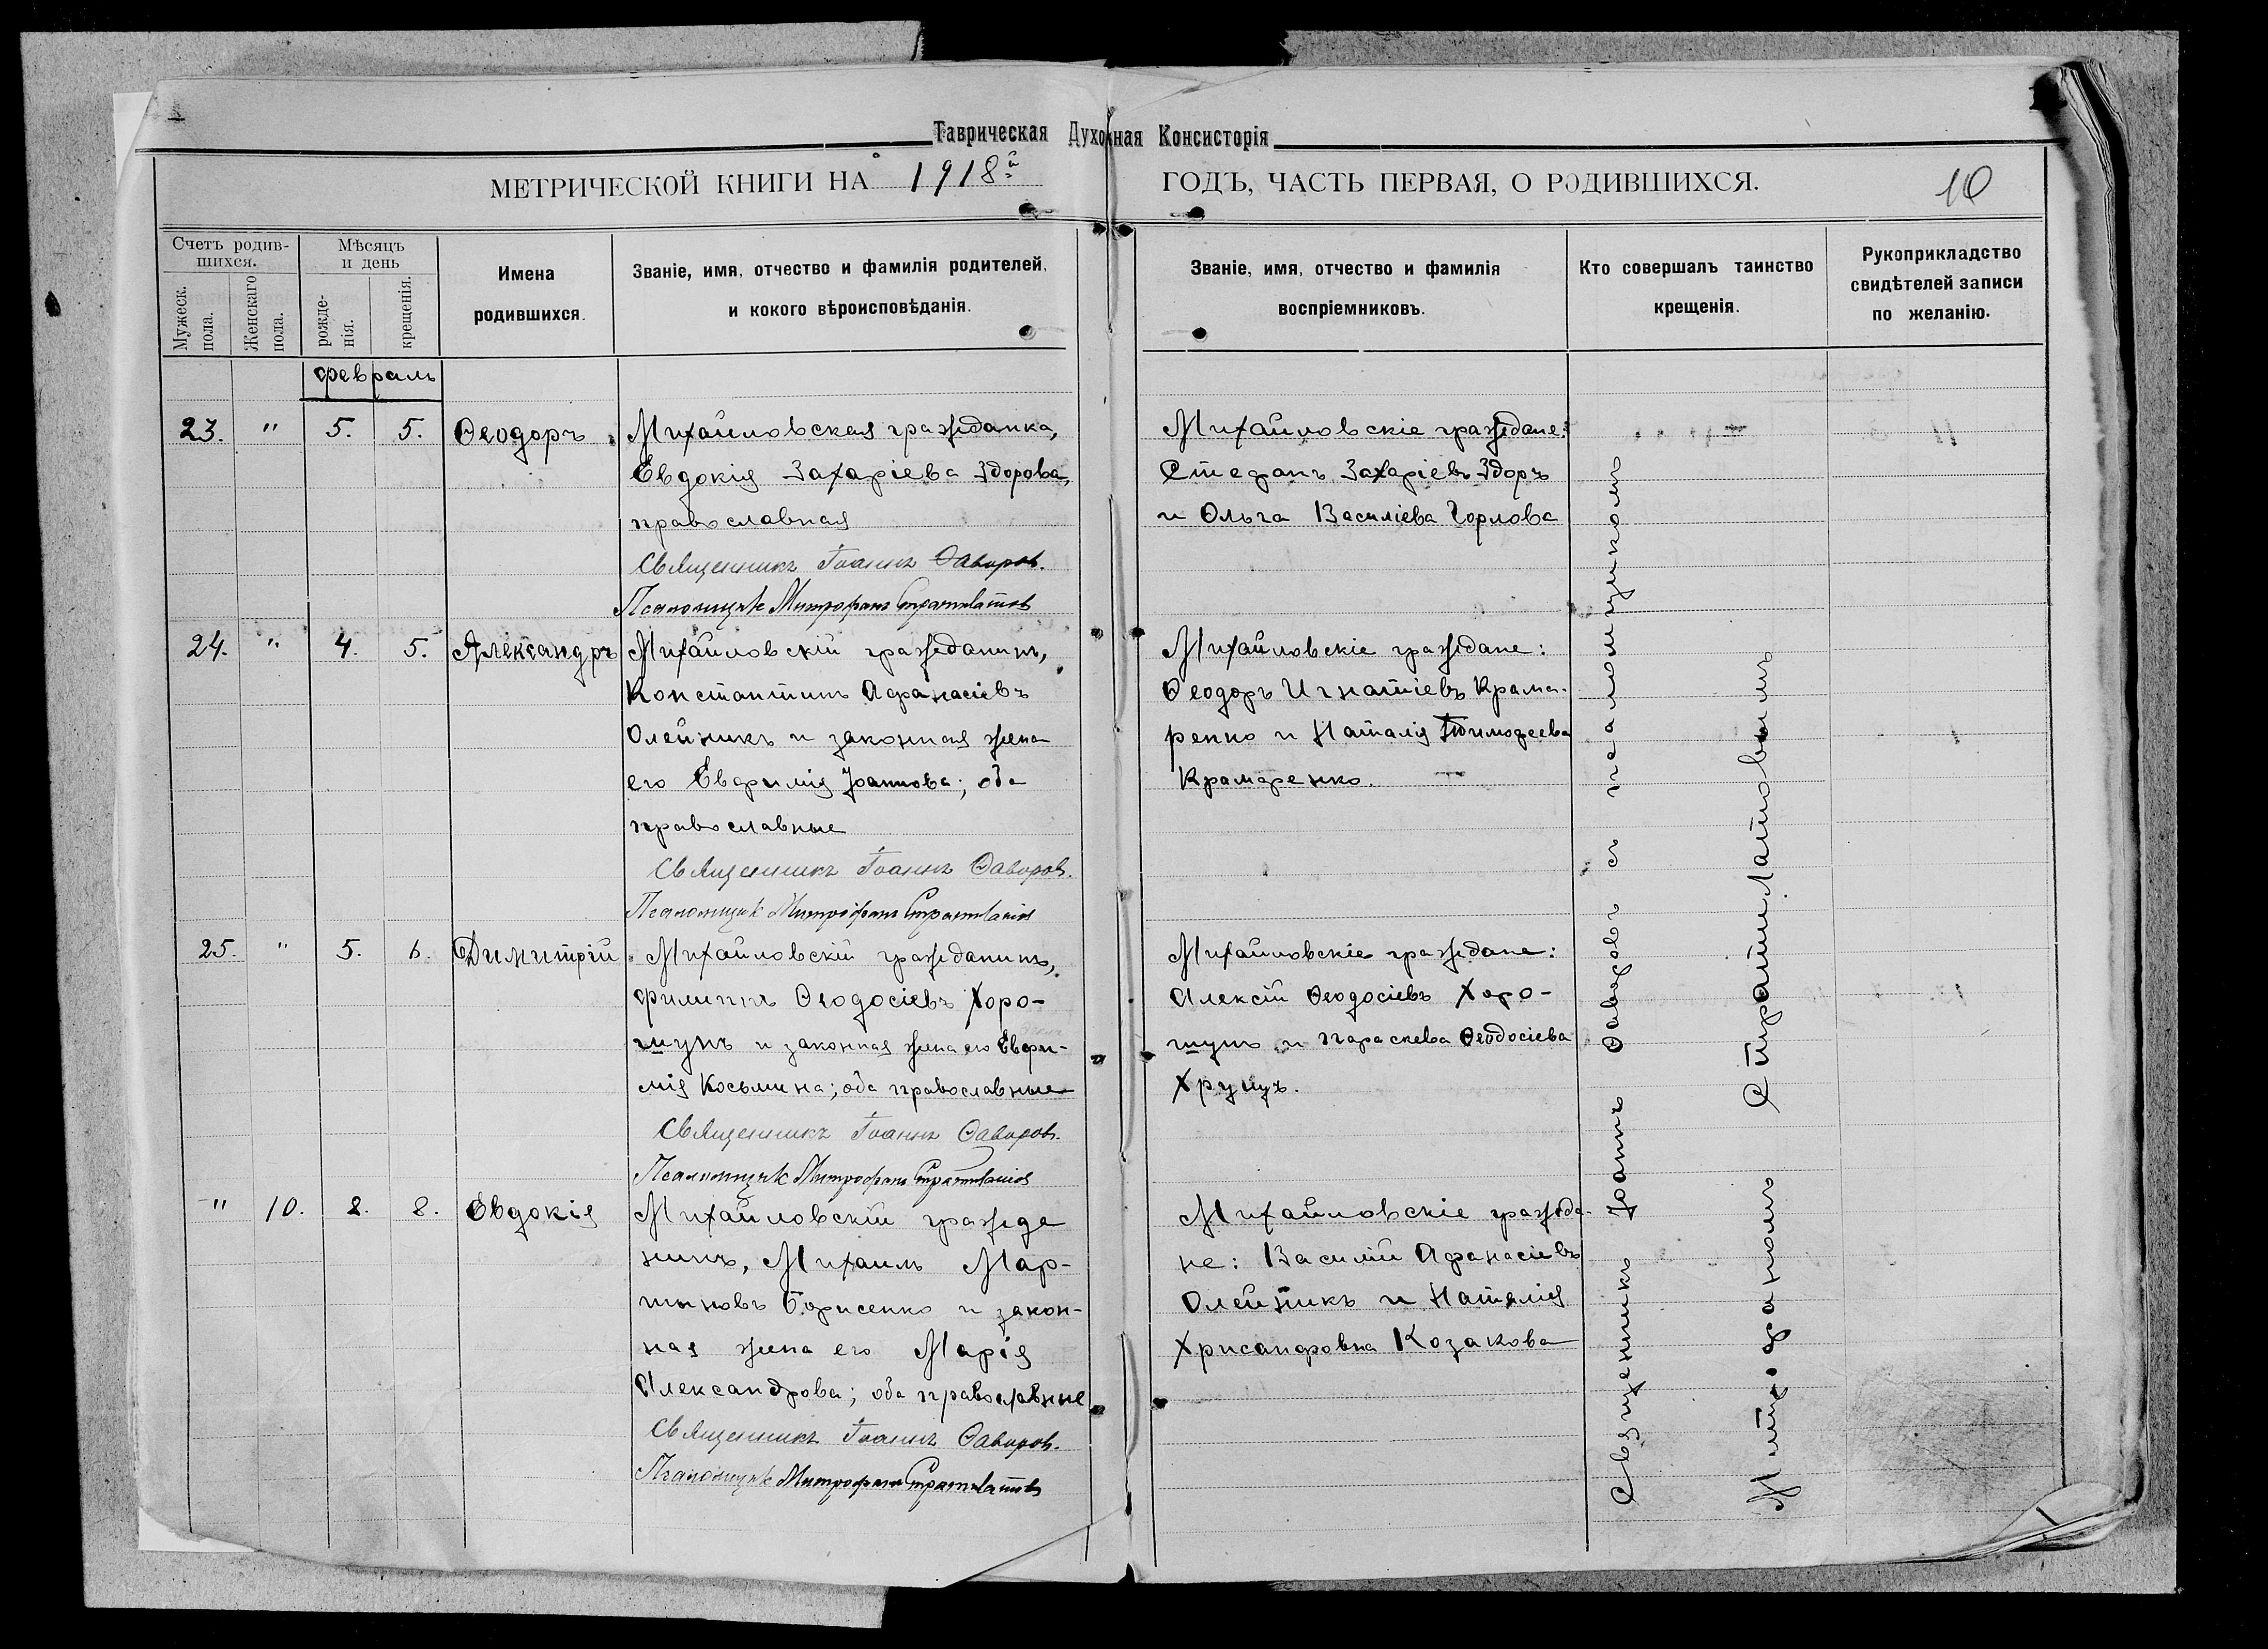 Таврическая Духовная Консисторія
МЕТРИЧЕСКОЙ КНИГИ НА 1918й ГОДЪ, ЧАСТЬ ПЕРВАЯ, О РОДИВШИХСЯ.
10
Счетъ родив-
шихся.
Мужеск.
пола.
Женскаго
пола.
Мѣсяцъ
и день
рожде-
нія.
крещенія.
Имена
родившихся.
Званіе, имя, отчество и фамилія родителей,
и кокого вѣроисповѣданія.
Званіе, имя, отчество и фамилія
воспріемниковъ.
Кто совершалъ таинство
крещенія.
Рукоприкладство
свидѣтелей записи
по желанію.
февраль
23. " 5. 5. Ѳеодоръ
Михайловская гражданка,
Евдокія Захаріева Здорова,
православная
Священникъ Іоаннъ Ѳаворов.
Псаломщикъ Митрофанъ Стратилатовъ
Михайловскіе граждане:
Стефанъ Захаріевъ Здоръ
и Ольга Василіева Горлова
24. " 4. 5. Александръ
Михайловскій гражданинъ,
Константинъ Афанасіевъ
Олейникъ и законная жена
его Евфимія Іоаннова; оба
православные
Священникъ Іоаннъ Ѳаворов.
Псаломщикъ Митрофанъ Стратилатовъ
Михайловскіе граждане:
Ѳеодоръ Игнатіевъ Крама-
ренко и Наталія Тимофеева
Крамаренко.
25. " 5. 6. Димитрій
Михайловскій гражданинъ,
Филиппъ Ѳеодосіевъ Хоро-
шунъ и законная жена его Евфи-
мія Косьмина; оба православные
Священникъ Іоаннъ Ѳаворов.
Псаломщикъ Митрофанъ Стратилатовъ
Михайловскіе граждане:
Алексій Ѳеодосіевъ Хоро-
шунъ и Параскева Ѳеодосіева
Хрущъ.
" 10. 8. 8. Евдокія
Михайловскій гражда
нинъ, Михаилъ Мар-
тыновъ Борисенко и закон-
ная жена его Марія
Александрова; оба православные
Священникъ Іоаннъ Ѳаворов.
Псаломщикъ Митрофанъ Стратилатовъ
Михайловскіе гражда-
не: Василій Афанасіевъ
Олейникъ и Наталія
Хрисанфовна Козакова
Священникъ Іоаннъ Ѳаворовъ съ псаломщикомъ
Митрофаномъ Стратилатовымъ